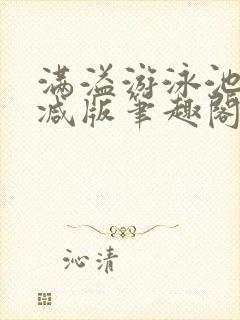 满溢游泳池
减版笔趣阁
沁清